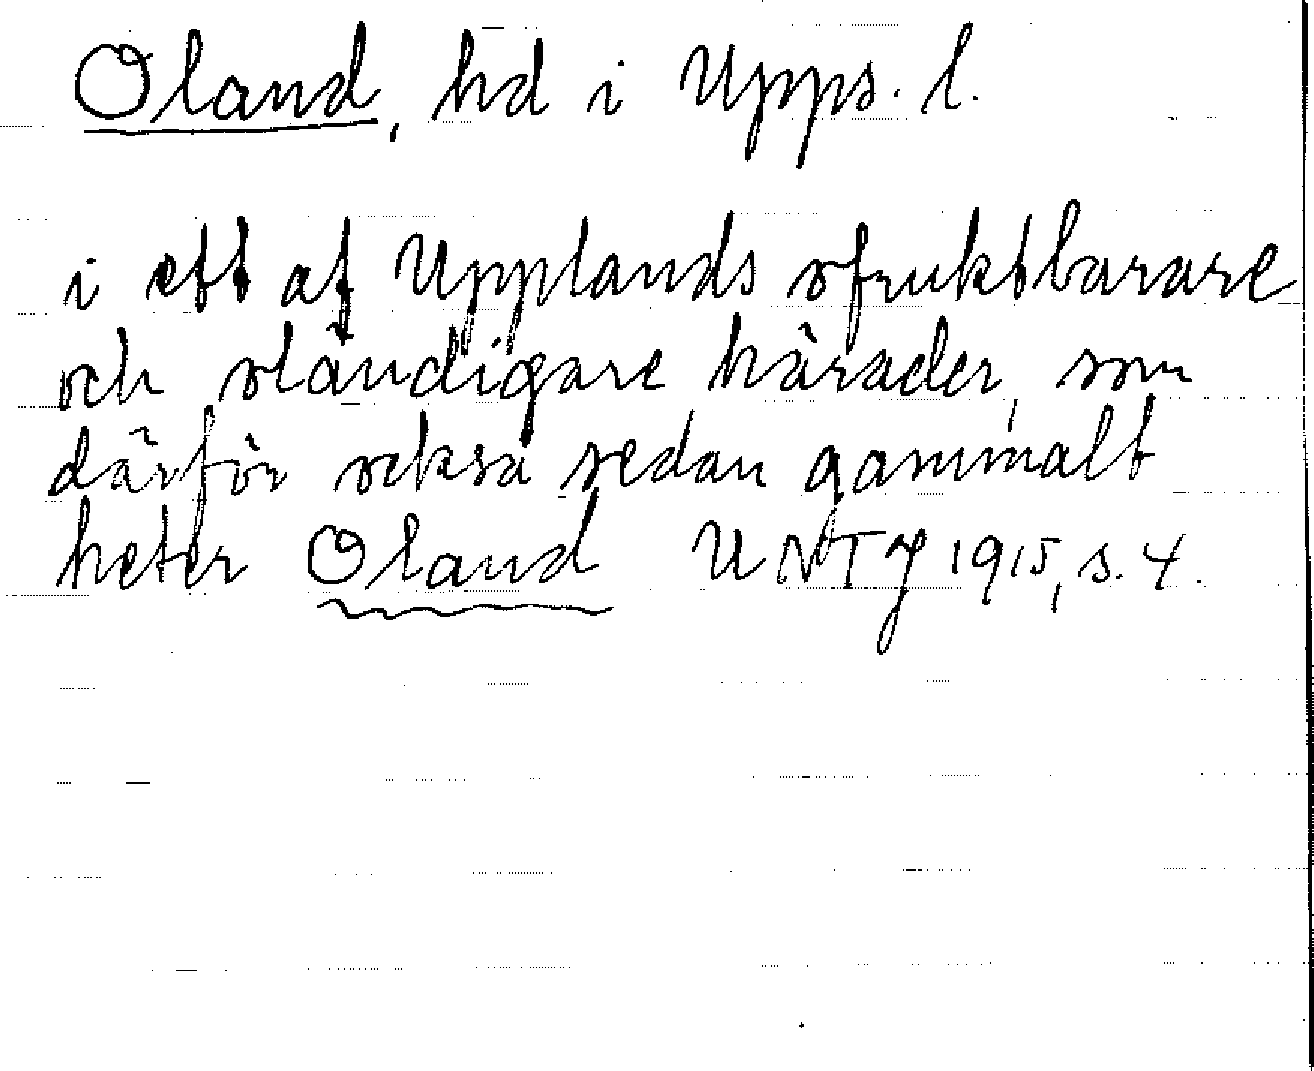 Oland, hd i Upps. l.
i ett af Upplands ofruktbarare
och oländigare härader, som
därför också sedan gammalt
heter Oland UNTJ 1915, s. 4.